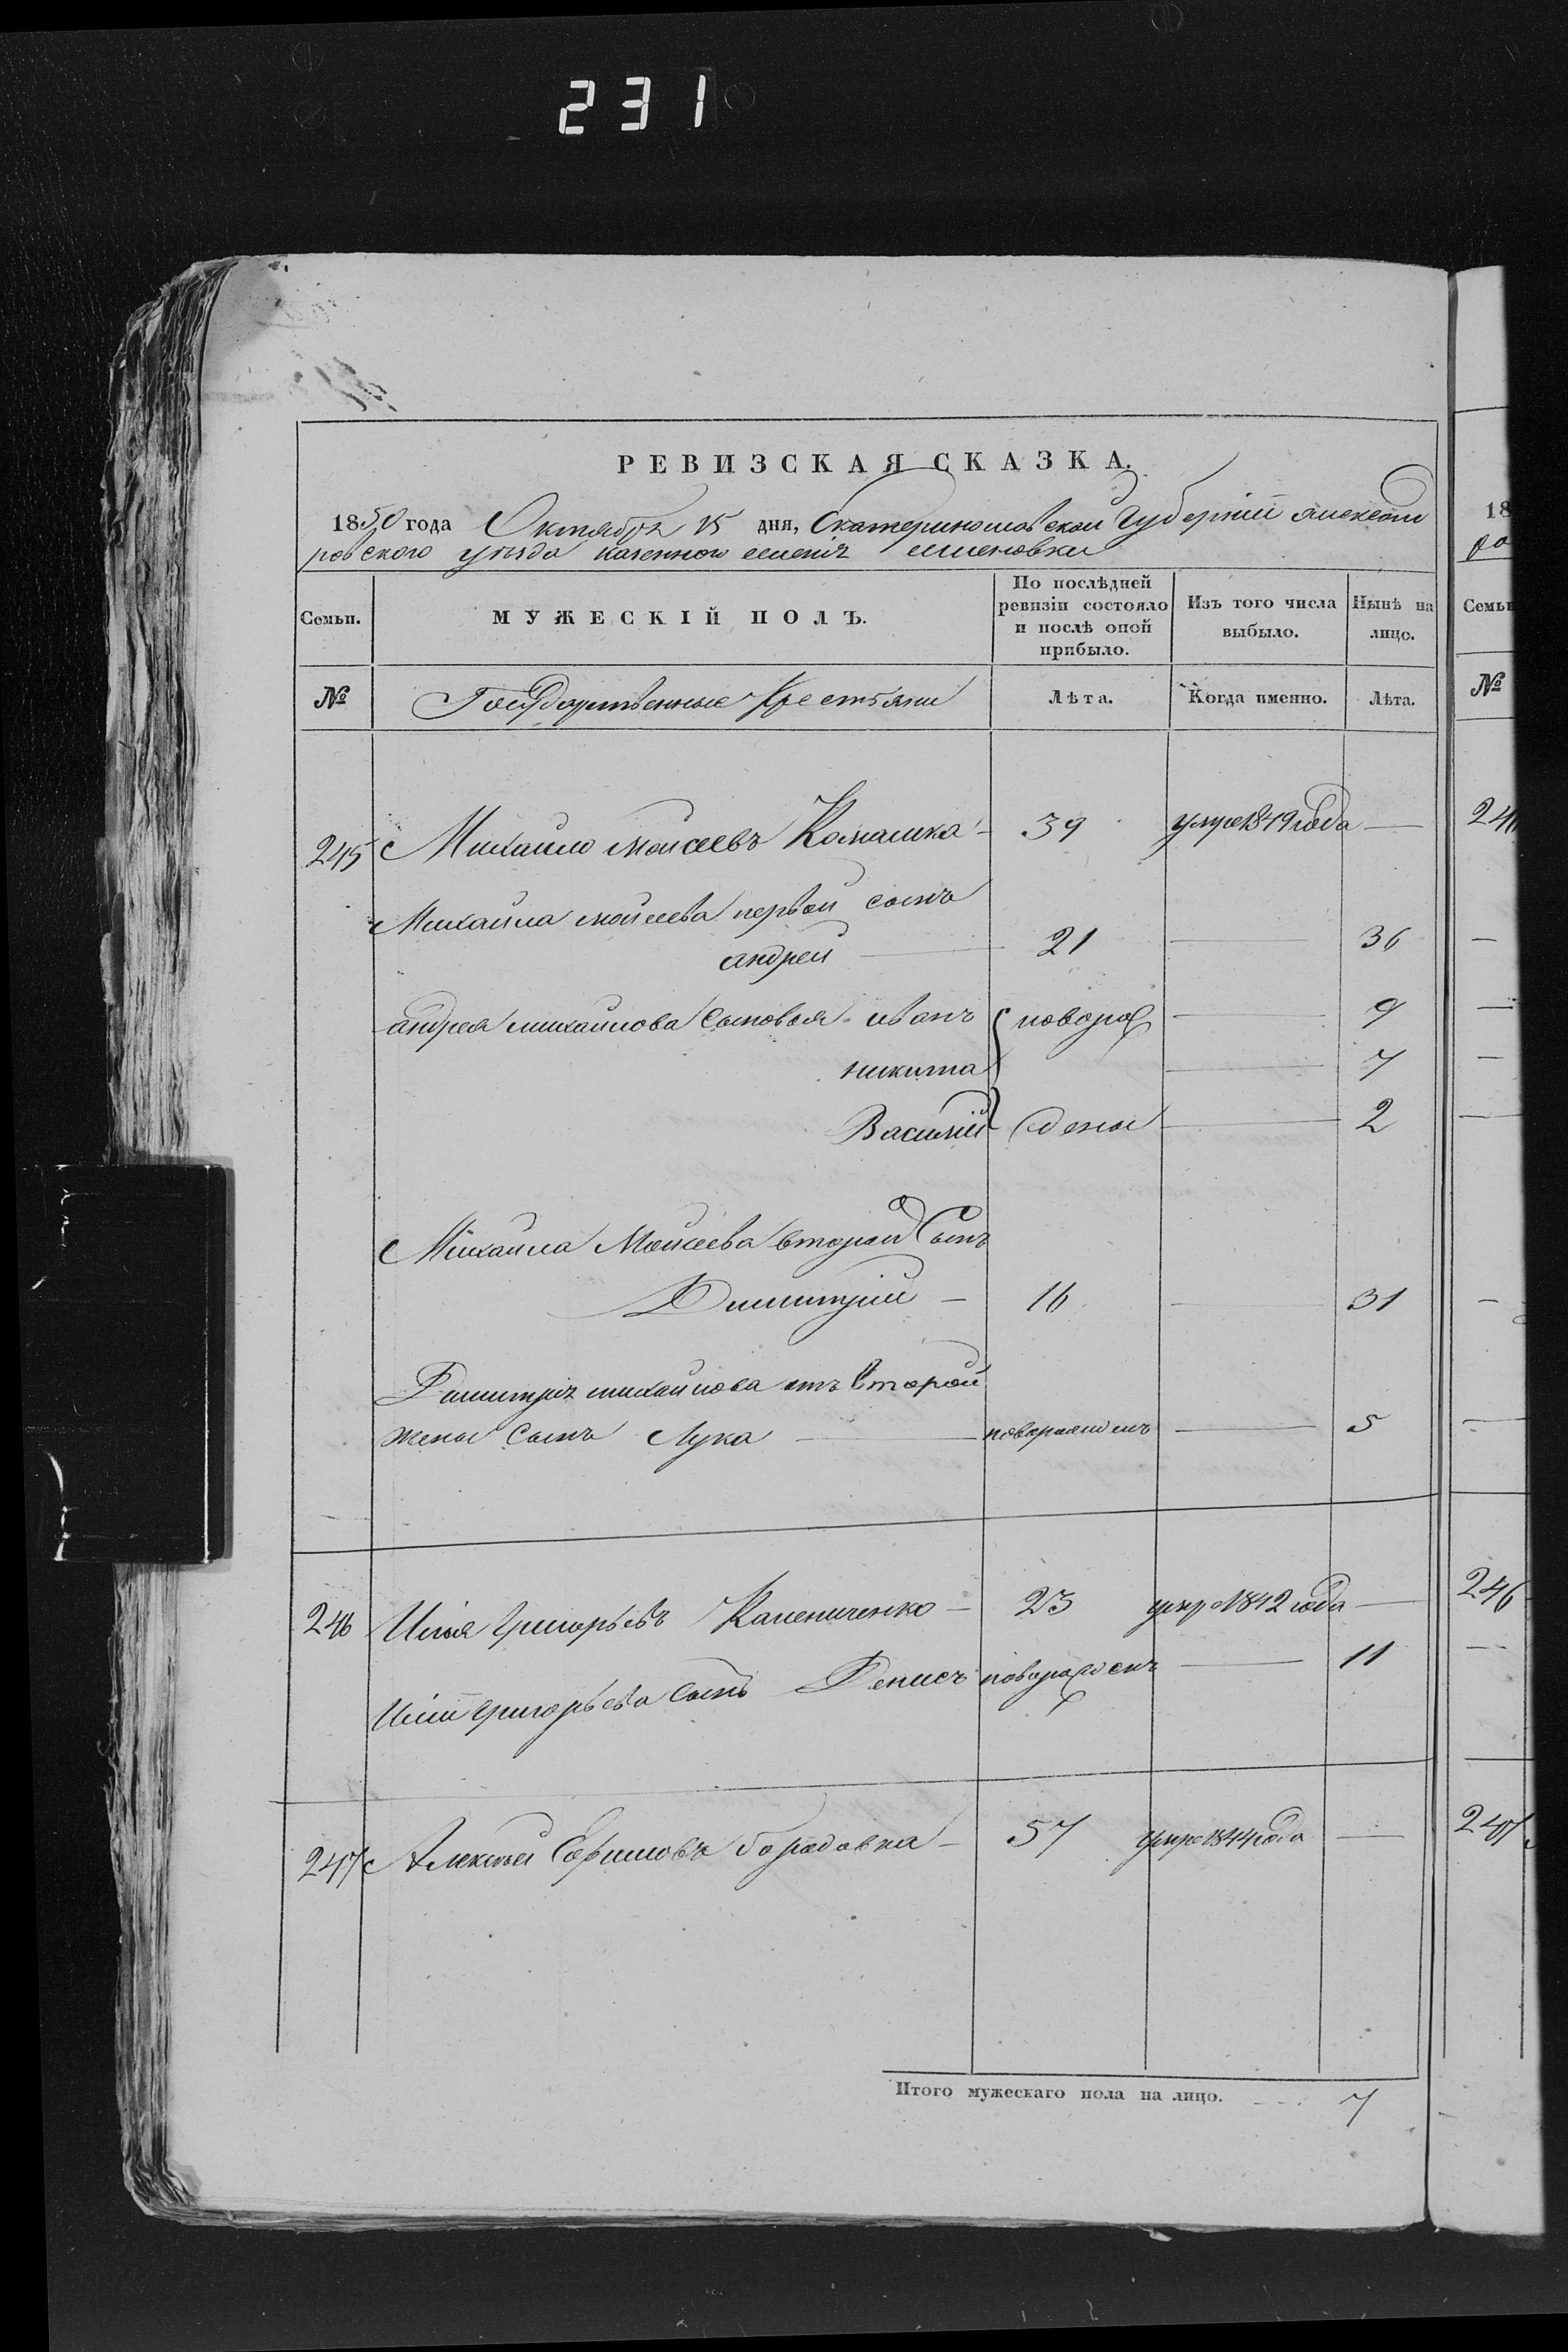 231
РЕВИЗСКАЯ СКАЗКА.
1850 года Октября 15 дня, Екатеринославской Губерніи Александ
ровского уезда казенного селенія
Семьи. МУЖЕСКІЙ ПОЛЪ. По послѣдней ревизіи состояло и послѣ оной прибыло. Изъ того числа выбыло. Нынѣ на лицо.
№ Государственные Крестьяне Лѣта. Когда именно. Лѣта.
245 Михайло Моисеевъ Камашка 39 умре 1849 года —
Михайла Моисеева первой сынъ
андрей — 21 — 36
андрея михайлова Сыновья иванъ новорож — 9
никита — 7
Василій дены — 2
Михайла Моисеева второй Сынъ
Димитрій — 16 — 31
Димитрія михайлова отъ второй
жены Сынъ Лука — новорожденъ — 5
246 Илья Григорьевъ Каленченко — 23 умре 1842 года —
Ильи Григорьева Сынъ Денисъ новорожденъ — 11
247 Алексей Ефимовъ бородавка — 57 умре 1844 года —
Итого мужескаго пола на лицо. 7
18
ро
Семьи
№
246
247